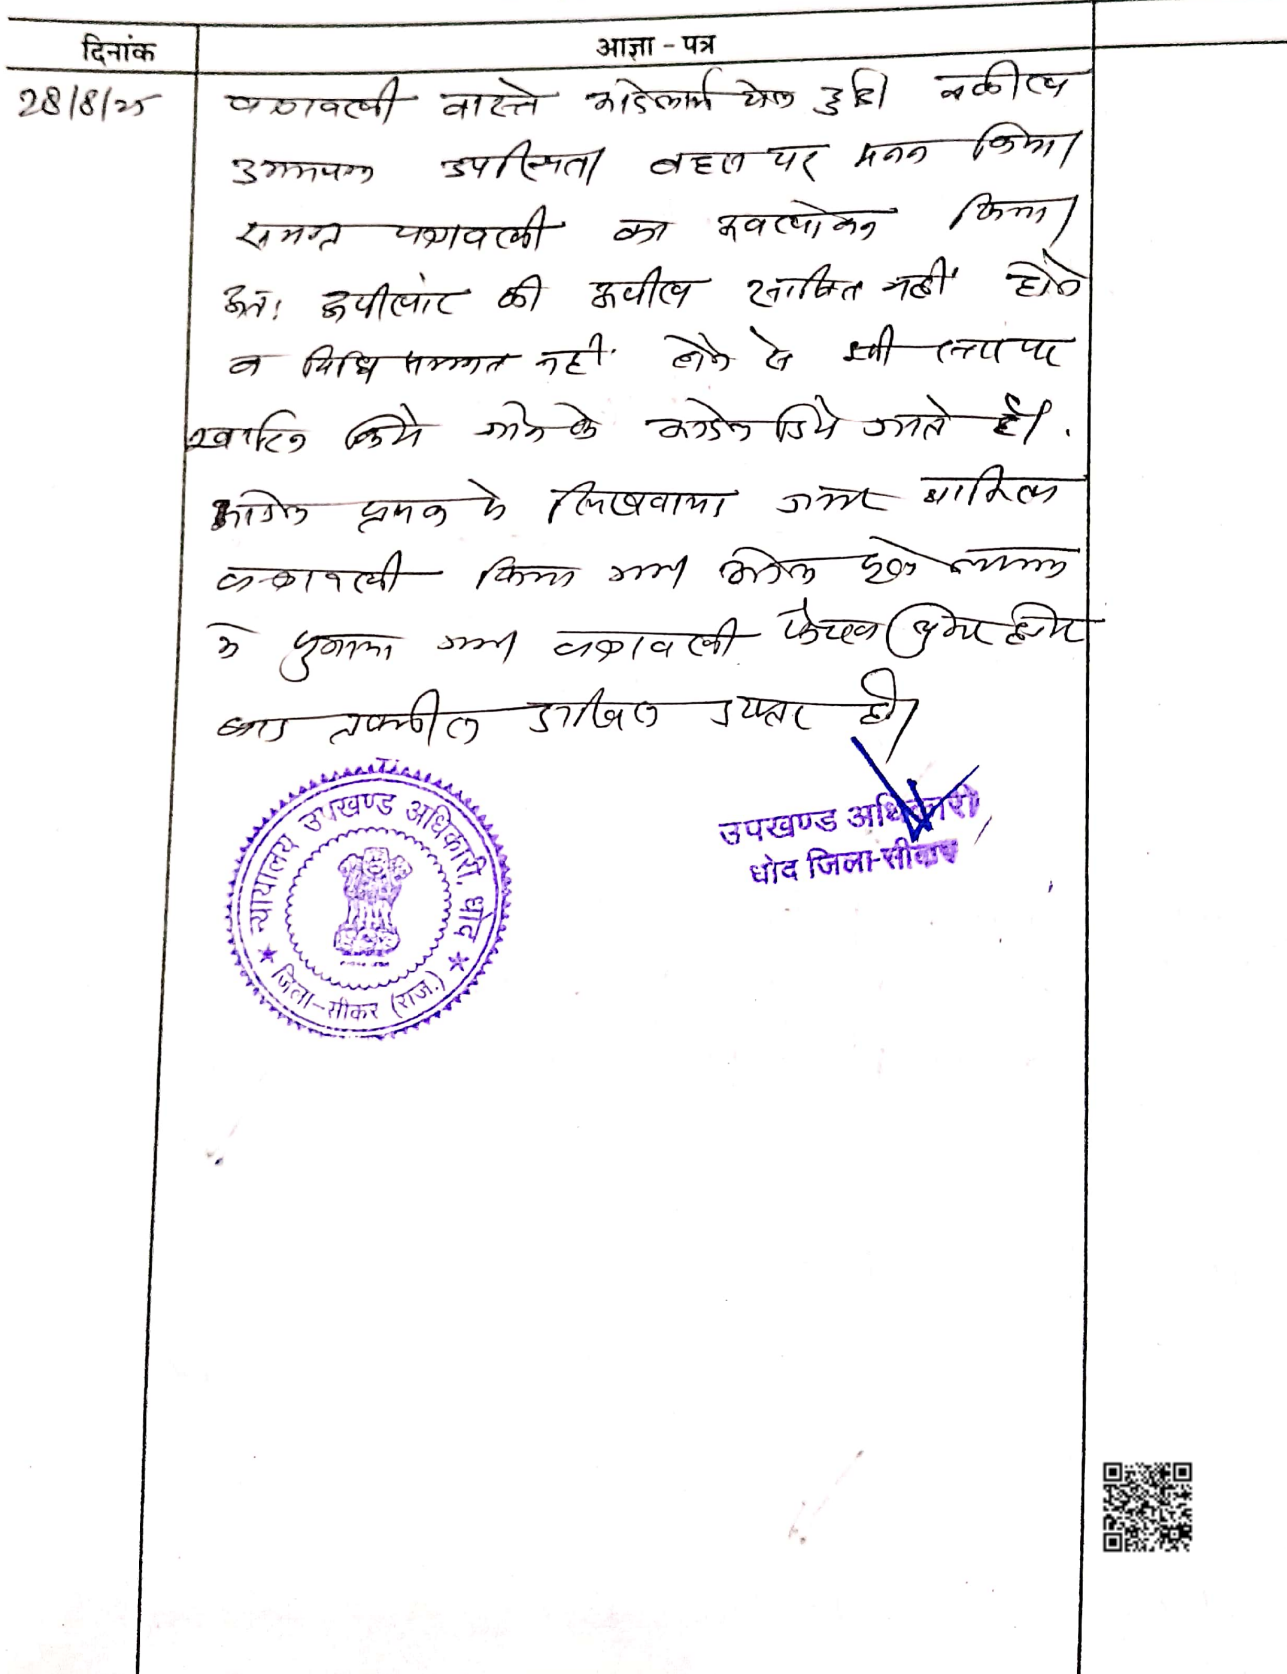 दिनांक आज्ञा - पत्र
28/8/25 पत्रावली वास्ते आदेशार्थ पेश हुई। वकील
उभयपक्ष उपस्थित। बहस पर मनन किया।
समग्र पत्रावली का अवलोकन किया।
अतः अपीलांट की अपील साबित नहीं होने
व विधि सम्मत नहीं होने से इसी स्तर पर
खारिज किये जाने के आदेश दिये जाते हैं।
आदेश पृथक से लिखवाया जाकर शामिल
पत्रावली किया गया। आदेश खुले न्यायालय
में सुनाया गया। पत्रावली फैसल शुमार होकर
बाद तकमील दाखिल दफ्तर हो।
न्यायालय उपखण्ड अधिकारी, धोद
जिला-सीकर (राज.)
उपखण्ड अधिकारी
धोद जिला-सीकर